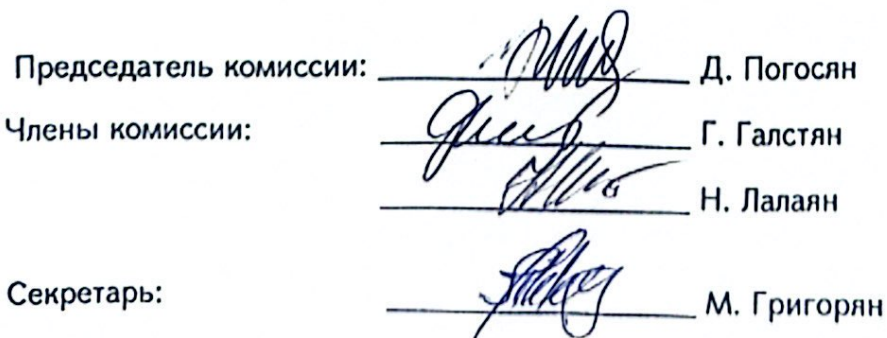 Председатель комиссии: Д. Погосян
Члены комиссии: Г. Галстян
Н. Лалаян
Секретарь: М. Григорян